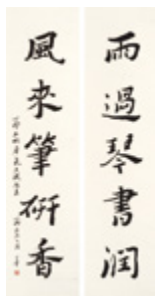 雨過琴書潤
風來筆研香